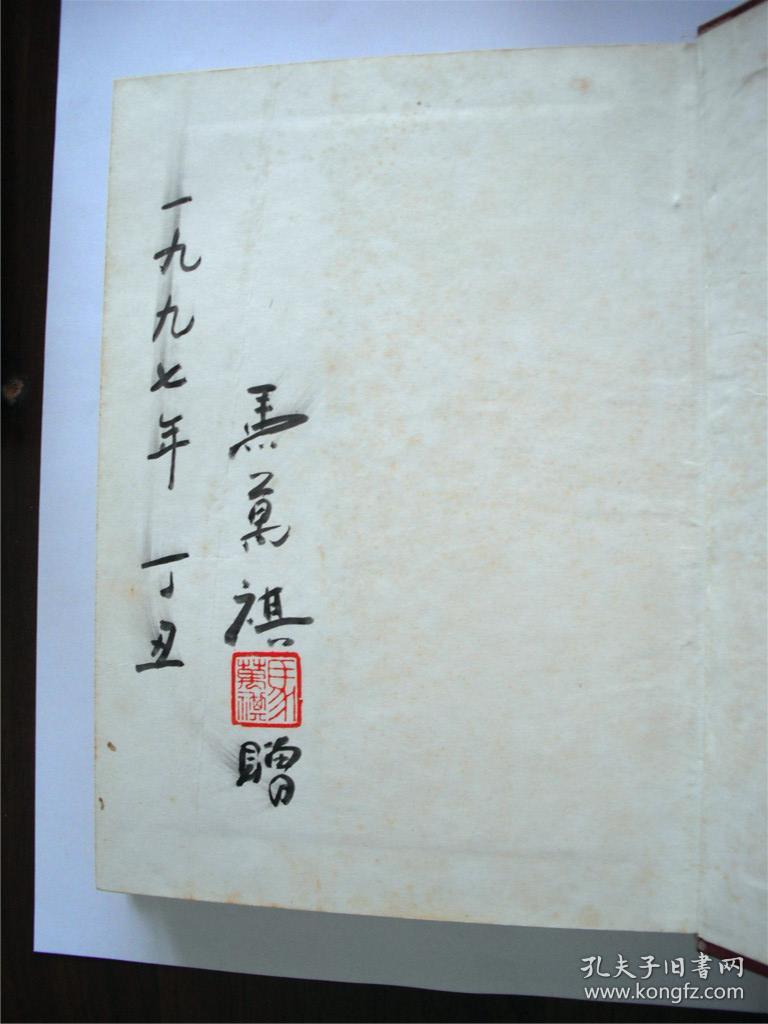 馬萬祺
馬萬祺
贈
一九九七年 丁丑
孔夫子旧书网
www.kongfz.com